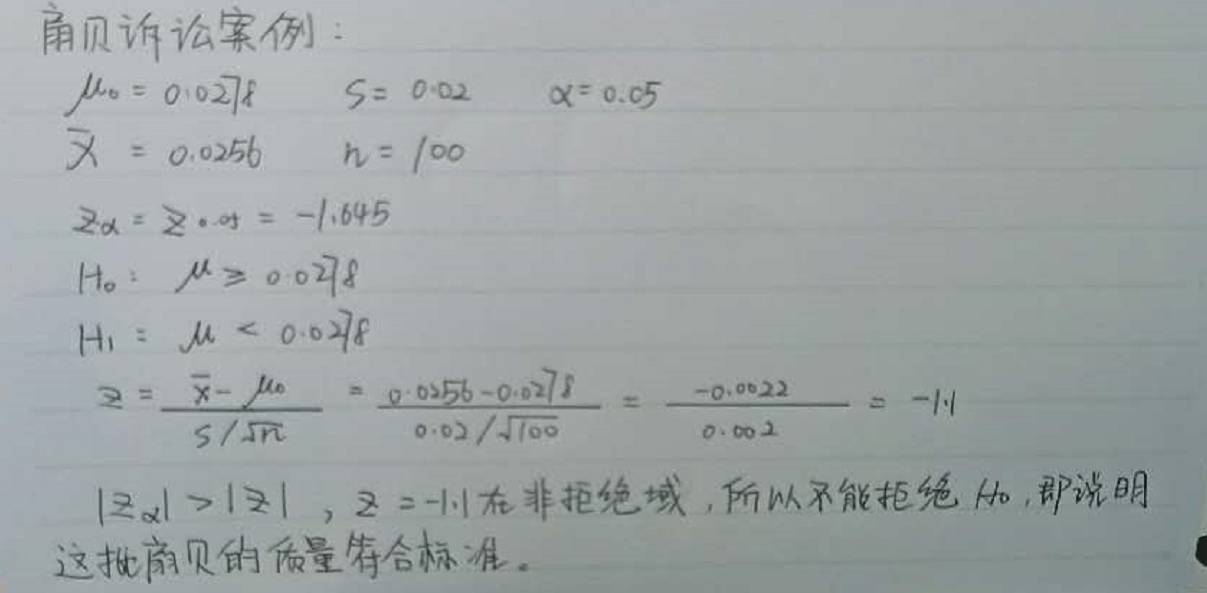 扇贝诉讼案例：
μ₀ = 0.0278 S = 0.02 α = 0.05
x̄ = 0.0256 n = 100
zα = z0.05 = -1.645
H₀： μ ≥ 0.0278
H₁： μ < 0.0278
z = (x̄ - μ₀) / (S/√n) = (0.0256 - 0.0278) / (0.02/√100) = -0.0022 / 0.002 = -1.1
|zα| > |z| ，z = -1.1在非拒绝域，所以不能拒绝 H₀，即说明
这批扇贝的质量符合标准。